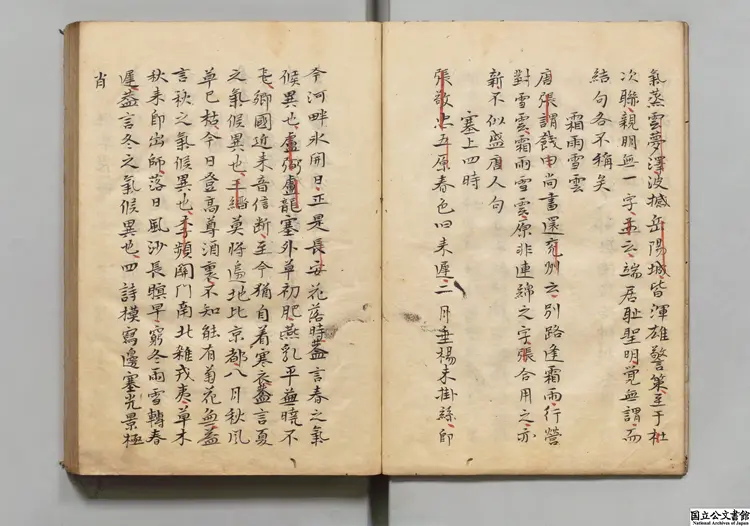 氣蒸雲夢澤波撼岳陽城皆渾雄警策至于杜
次聯親朋無一字孟云端居耻聖明覺無謂而
結句各不稱矣
霜雨雪雲
唐張謂餞申尚書還兗州云別路逢霜雨行營
對雪雲霜雨雪雲原非連綿之字張合用之亦
新不似盛唐人句
塞上四時
張敬忠五原春色曰来遲二月垂楊未掛絲即
今河畔氷開日正是長安花落時葢言春之氣
候異也盧弼盧龍塞外草初肥燕乳平蕪曉不
飛鄉國近来音信斷至今猶自着寒衣葢言夏
之氣候異也王縉莫將邉地比京都八月秋風
草已枯今日登高尊酒裏不知能有菊花無葢
言秋之氣候異也李頻關門南北雜戎夷草木
秋来即出師落日風沙長暝早窮冬雨雪轉春
遲葢言冬之氣候異也四詩模寫邊塞光景極
肖
国立公文書館
National Archives of Japan